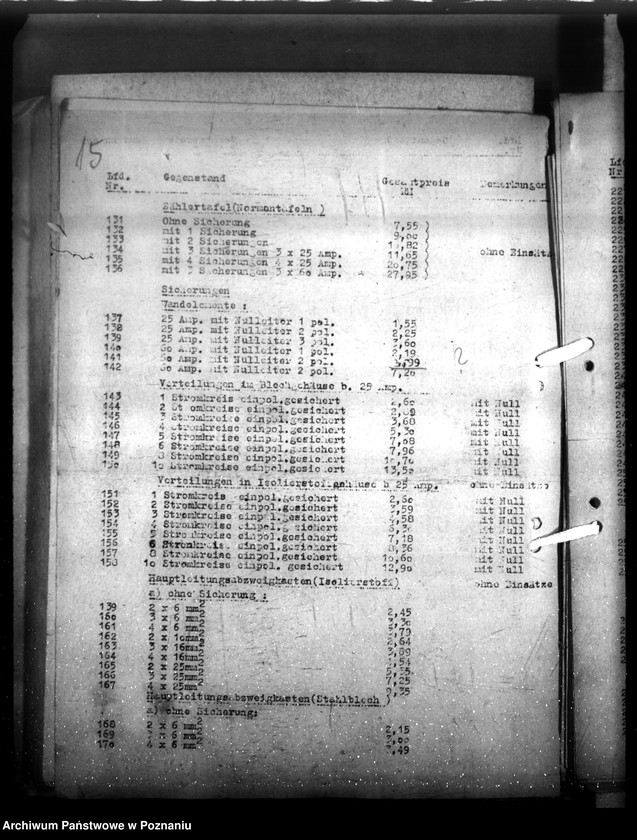 15
Lfd. Gegenstand Gesamtpreis Bemerkungen
Nr. RM
Zählertafel(Normentafeln )
131 Ohne Sicherung 7,55
132 mit 1 Sicherung
133 mit 2 Sicherungen
134 mit 3 Sicherungen 3 x 25 Amp. 11,65 ohne Einsätze
135 mit 4 Sicherungen 4 x 25 Amp. 20,75
136 mit 3 Sicherungen 3 x 60 Amp. 27,95
Sicherungen
Wandelemente :
137 25 Amp. mit Nulleiter 1 pol. 1,55
138 25 Amp. mit Nulleiter 2 pol. 2,25
139 25 Amp. mit Nulleiter 3 pol.
140 60 Amp. mit Nulleiter 1 pol. 2,19
141 60 Amp. mit Nulleiter 2 pol.
142 60 Amp. mit Nulleiter 2 pol. 7,20
Verteilungen im Blechgehäuse b. 25 Amp.
143 1 Stromkreis einpol.gesichert mit Null
144 2 Stromkreise einpol.gesichert mit Null
145 3 Stromkreise einpol.gesichert mit Null
146 4 Stromkreise einpol.gesichert mit Null
147 5 Stromkreise einpol.gesichert 7,08 mit Null
148 6 Stromkreise einpol.gesichert 7,96 mit Null
149 8 Stromkreise einpol.gesichert mit Null
150 10 Stromkreise einpol.gesichert mit Null
Verteilungen in Isolierstoffgehäuse b 25 Amp. ohne Einsätze
151 1 Stromkreis einpol.gesichert 2,60 mit Null
152 2 Stromkreise einpol.gesichert 3,59 mit Null
153 3 Stromkreise einpol.gesichert 4,58 mit Null
154 4 Stromkreise einpol.gesichert mit Null
155 5 Stromkreise einpol.gesichert 7,18 mit Null
156 6 Stromkreise einpol.gesichert 8,36 mit Null
157 8 Stromkreise einpol. gesichert 10,60 mit Null
158 10 Stromkreise einpol. gesichert 12,90 mit Null
Hauptleitungsabzweigkasten(Isolierstoff) ohne Einsätze
a) ohne Sicherung :
159 2 x 6 mm² 2,45
160 3 x 6 mm²
161 4 x 6 mm²
162 2 x 16mm² 2,64
163 3 x 16mm²
164 4 x 16mm² 4,54
165 2 x 25mm²
166 3 x 25mm² 7,25
167 4 x 25mm²
Hauptleitungsabzweigkasten(Stahlblech )
a) ohne Sicherung:
168 2 x 6 mm² 2,15
169 3 x 6 mm²
170 4 x 6 mm²
Archiwum Państwowe w Poznaniu